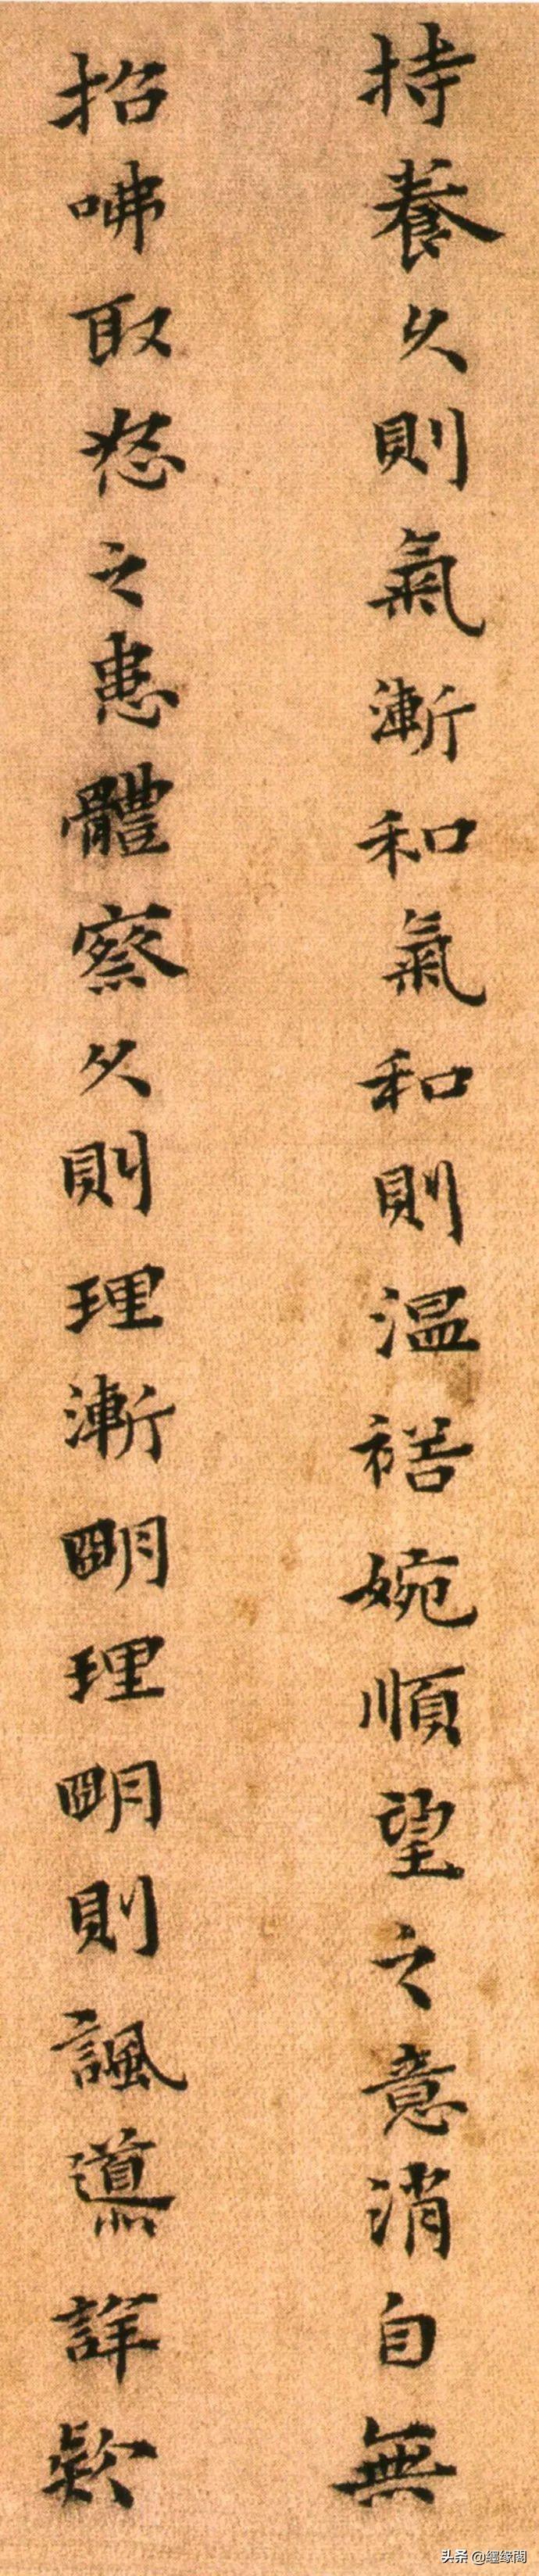 持養久則氣漸和氣和則温裕婉順望之意消自無
招咈取怒之患體察久則理漸明理明則諷導詳款
头条 @纏缘閣